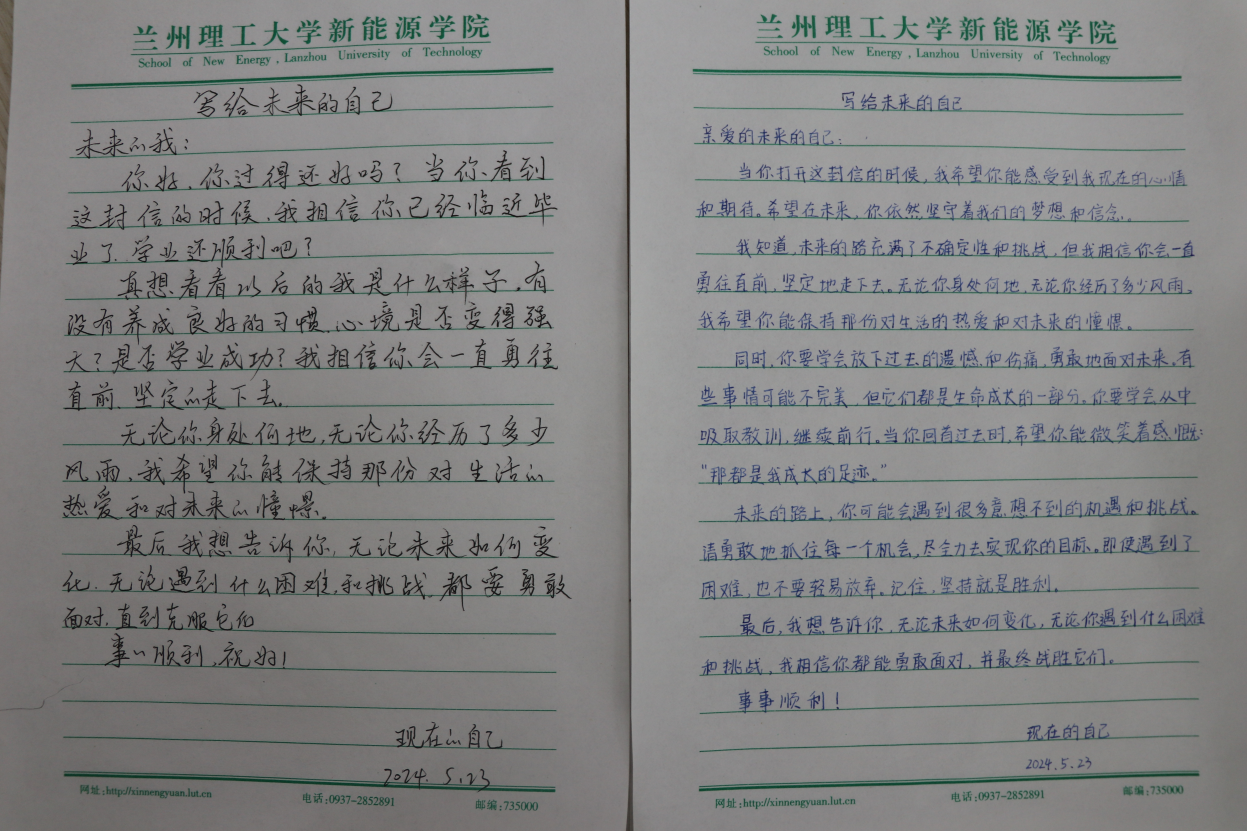 兰州理工大学新能源学院
School of New Energy, Lanzhou University of Technology
写给未来的自己
未来的我:
你好,你过得还好吗?当你看到
这封信的时候,我相信你已经临近毕
业了,学业还顺利吧?
真想看看以后的我是什么样子,有
没有养成良好的习惯,心境是否变得强
大?是否学业成功?我相信你会一直勇往
直前,坚定的走下去。
无论你身处何地,无论你经历了多少
风雨,我希望你能保持那份对生活的
热爱和对未来的憧憬。
最后我想告诉你,无论未来如何变
化,无论遇到什么困难和挑战,都要勇敢
面对,直到克服它们
事事顺利,祝好!
现在的自己
2024.5.23
网址:http://xinnengyuan.lut.cn 电话:0937-2852891 邮编:735000
兰州理工大学新能源学院
School of New Energy, Lanzhou University of Technology
写给未来的自己
亲爱的未来的自己:
当你打开这封信的时候,我希望你能感受到我现在的心情
和期待。希望在未来,你依然坚守着我们的梦想和信念。
我知道,未来的路充满了不确定性和挑战,但我相信你会一直
勇往直前,坚定地走下去。无论你身处何地,无论你经历了多少风雨,
我希望你能保持那份对生活的热爱和对未来的憧憬。
同时,你要学会放下过去的遗憾和伤痛,勇敢地面对未来。有
些事情可能不完美,但它们都是生命成长的一部分。你要学会从中
吸取教训,继续前行。当你回首过去时,希望你能微笑着感慨:
“那都是我成长的足迹。”
未来的路上,你可能会遇到很多意想不到的机遇和挑战。
请勇敢地抓住每一个机会,尽全力去实现你的目标。即使遇到了
困难,也不要轻易放弃。记住,坚持就是胜利。
最后,我想告诉你,无论未来如何变化,无论你遇到什么困难
和挑战,我相信你都能勇敢面对,并最终战胜它们。
事事顺利!
现在的自己
2024.5.23
网址:http://xinnengyuan.lut.cn 电话:0937-2852891 邮编:735000